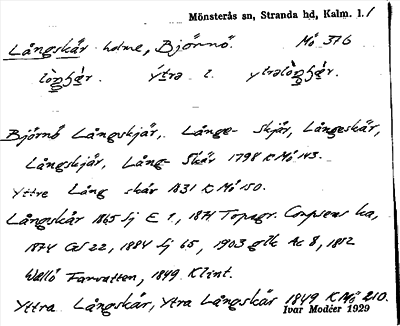 Mönsterås sn, Stranda hd, Kalm. l.
Långskär holme, Björnö. Mö 376
Björnö Långskjär, Långe- Skjär, Långeskär,
Långskjär, Lång- Skär 1798 K Mö 143.
Yttre Lång skär 1831 K Mö 150.
Långskär 1865 Sj E 1, 1871 Topogr. Corpsens ka,
1874 22, 1884 Sj 65, 1903 glk Ac 8, 1812
Wallö Farvatten, 1849 Klint.
Yttra Långskär, Ytra Långskär 1849 K Mö 210.
Ivar Modéer 1929